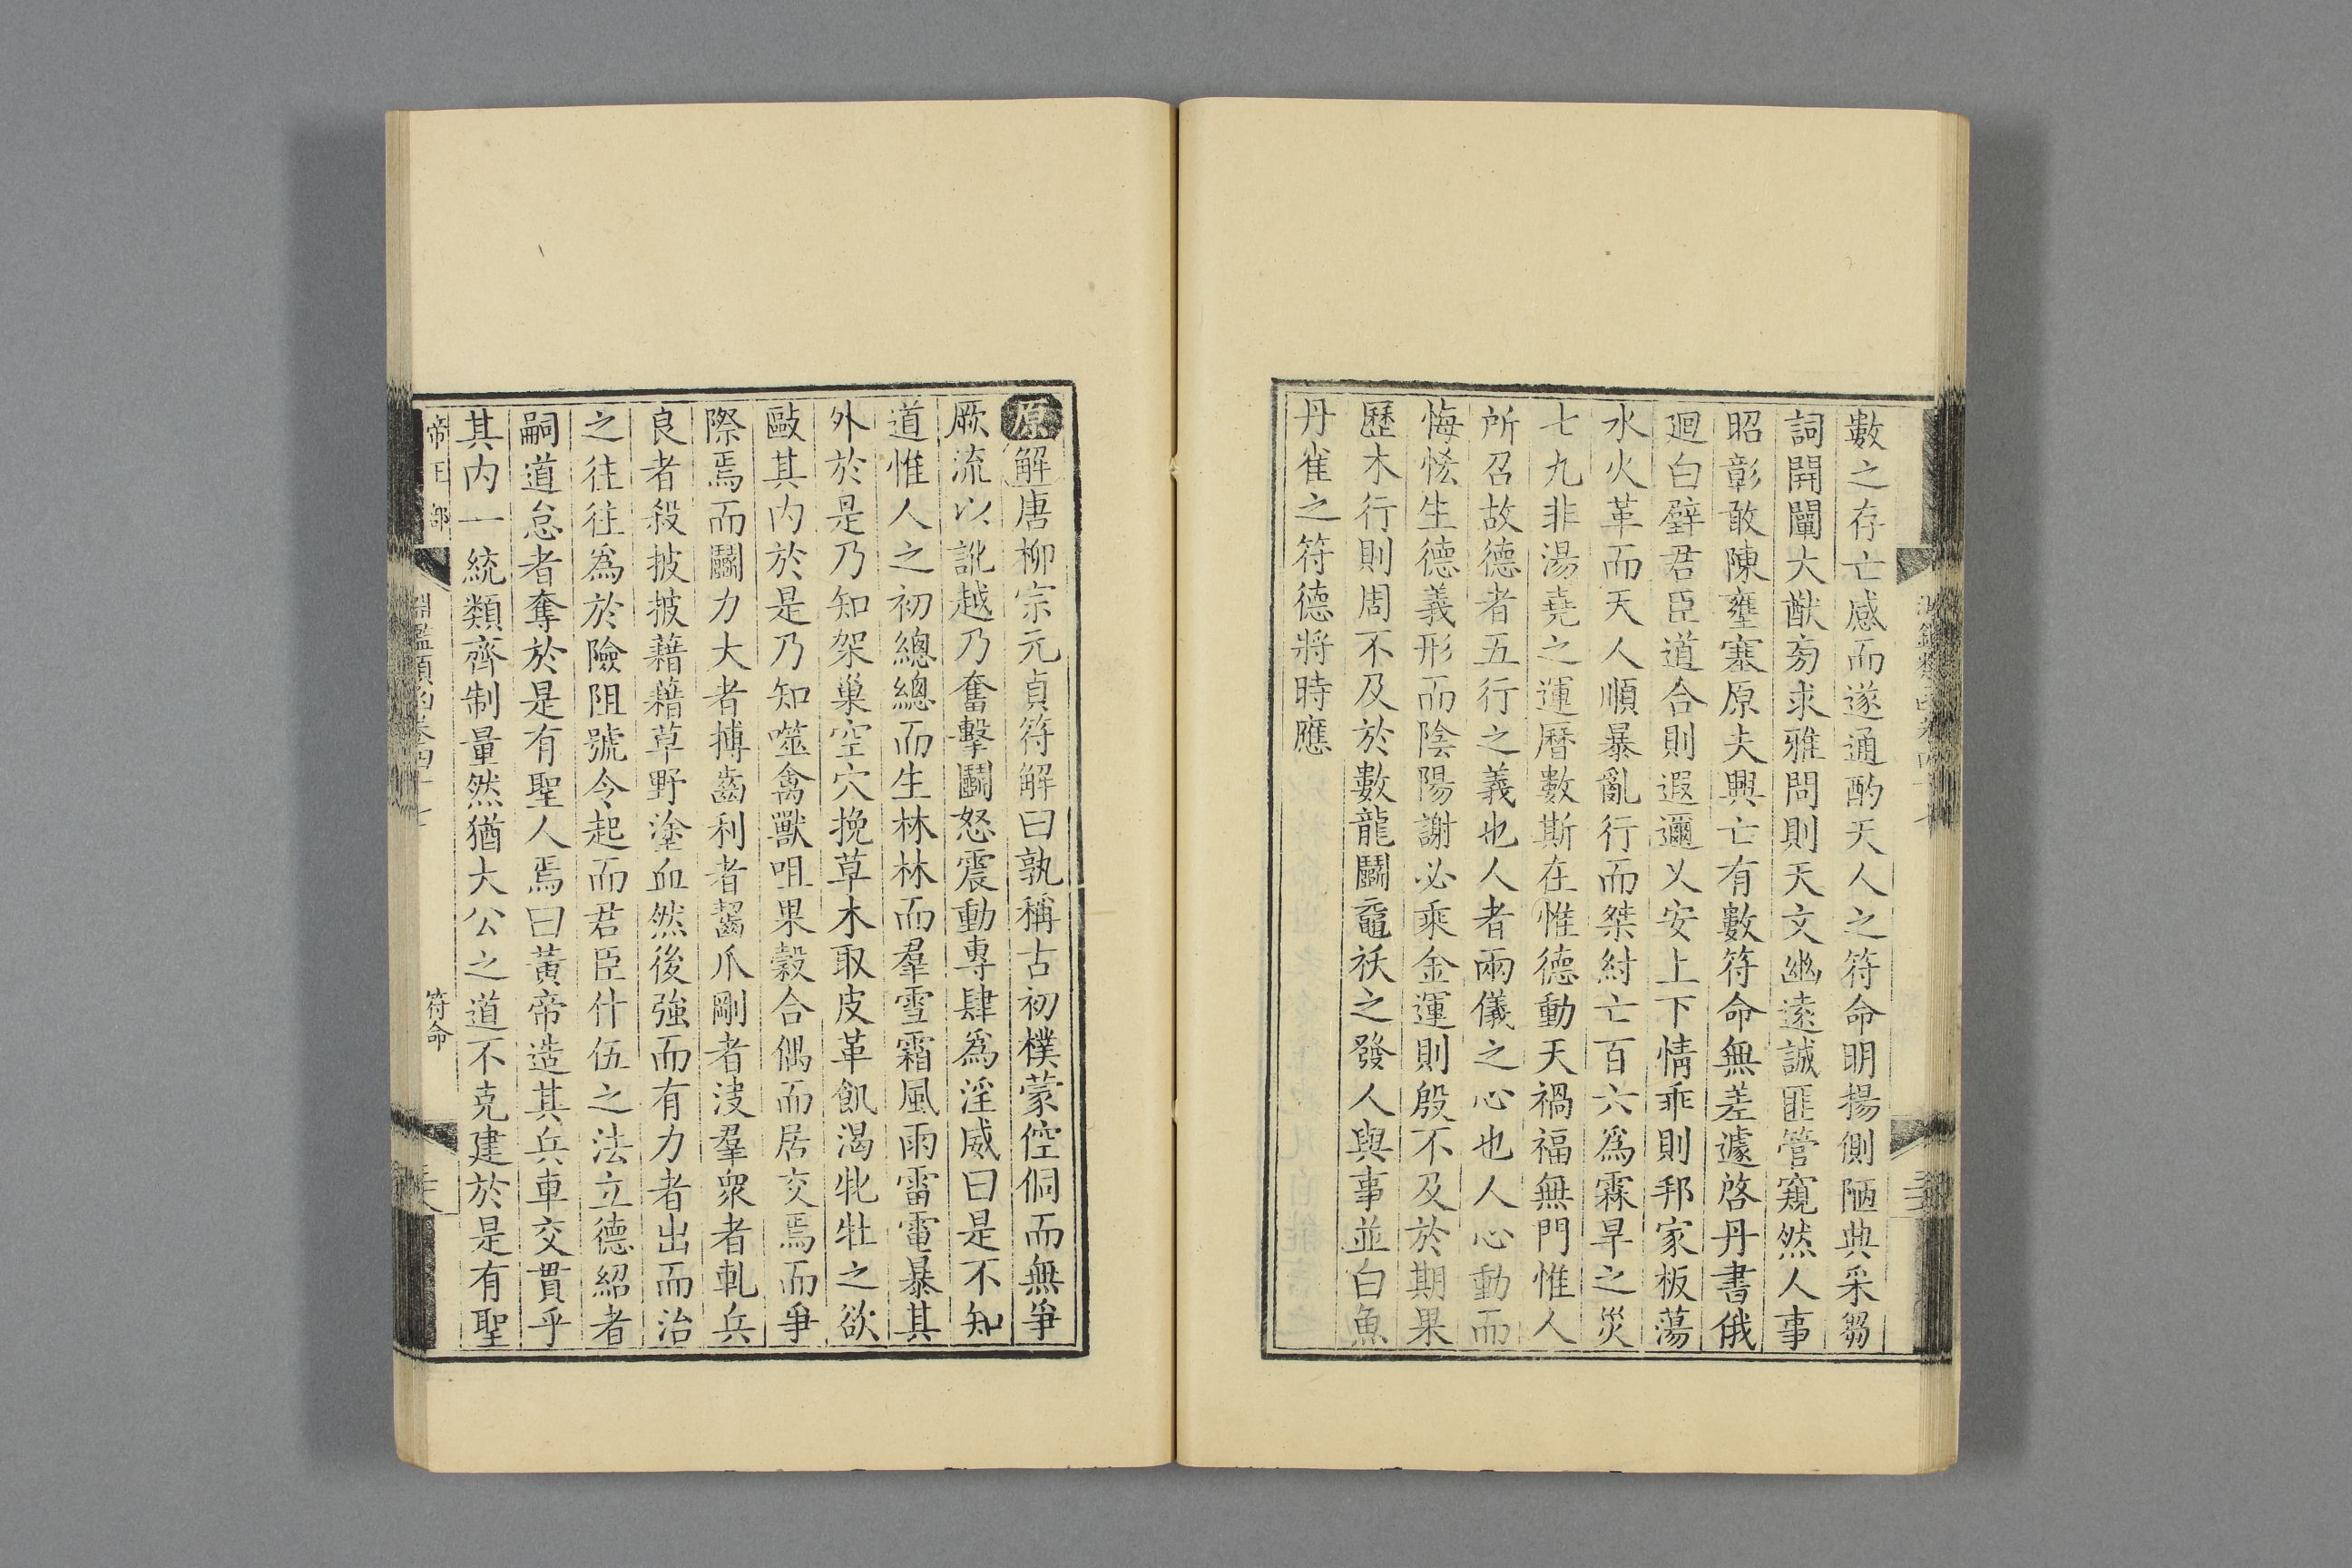 數之存亡感而遂通酌天人之符命明揚側陋典采芻
詞開闡大猷旁求雅問則天文幽遠誠匪管窺然人事
昭彰敢陳壅塞原夫興亡有數符命無差遽啓丹書俄
迴白璧君臣道合則遐邇乂安上下情乖則邦家板蕩
水火革而天人順暴亂行而桀紂亡百六爲霖旱之災
七九非湯堯之運曆數斯在惟德動天禍福無門惟人
所召故德者五行之義也人者兩儀之心也人心動而
悔恡生德義形而陰陽謝必乘金運則殷不及於期果
歷木行則周不及於數龍鬭黿祅之發人與事並白魚
丹雀之符德將時應
原解唐柳宗元貞符解曰孰稱古初樸蒙倥侗而無爭
厥流以訛越乃奮擊鬭怒震動專肆爲淫威曰是不知
道惟人之初總總而生林林而羣雪霜風雨雷電暴其
外於是乃知架巢空穴挽草木取皮革飢渴牝牡之欲
敺其內於是乃知噬禽獸咀果穀合偶而居交焉而爭
際焉而鬭力大者搏齒利者齧爪剛者決羣衆者軋兵
良者殺披披藉藉草野塗血然後強而有力者出而治
之往往爲於險阻號令起而君臣什伍之法立德紹者
嗣道怠者奪於是有聖人焉曰黃帝造其兵車交貫乎
其內一統類齊制量然猶大公之道不克建於是有聖
帝王部
淵鑑類函卷四十七
符命